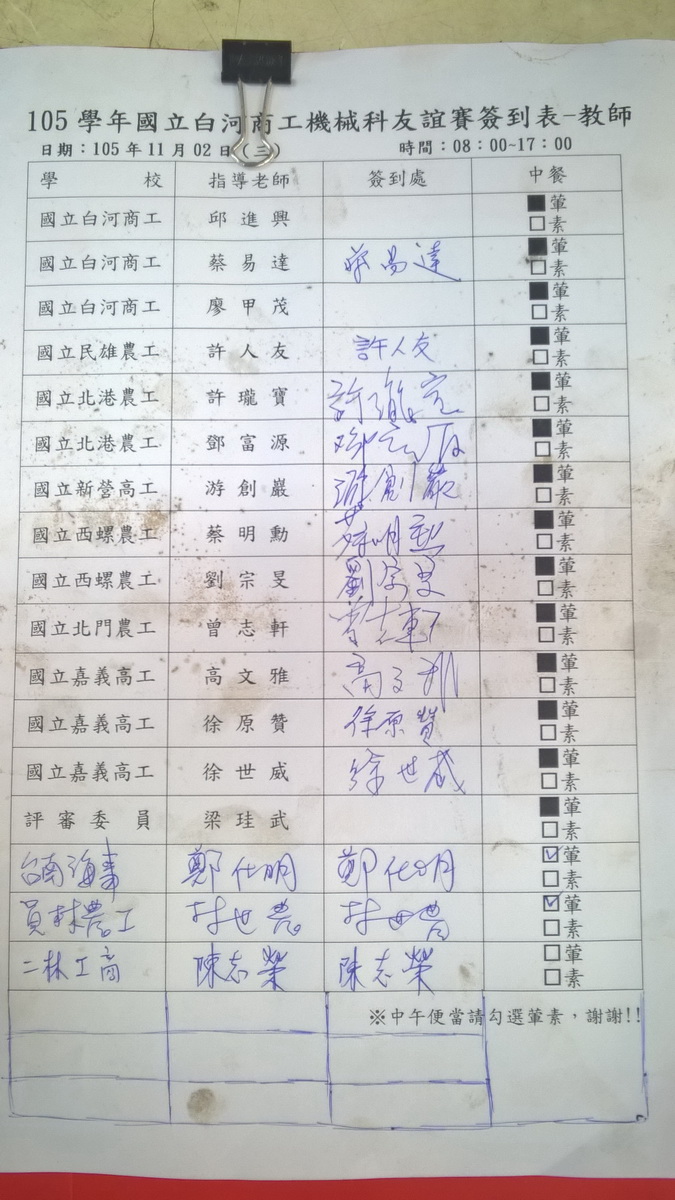 105學年國立白河商工機械科友誼賽簽到表-教師
日期：105年11月02日(三) 時間：08：00~17：00
學校 指導老師 簽到處 中餐
國立白河商工 邱進興 ■葷
□素
國立白河商工 蔡易達 蔡易達 ■葷
□素
國立白河商工 廖甲茂 ■葷
□素
國立民雄農工 許人友 許人友 ■葷
□素
國立北港農工 許瓏寶 許瓏宝 ■葷
□素
國立北港農工 鄧富源 ■葷
□素
國立新營高工 游創巖 游創巖 ■葷
□素
國立西螺農工 蔡明勳 蔡明勳 ■葷
□素
國立西螺農工 劉宗旻 劉宗旻 ■葷
□素
國立北門農工 曾志軒 曾志軒 ■葷
□素
國立嘉義高工 高文雅 高文雅 ■葷
□素
國立嘉義高工 徐原贊 徐原贊 ■葷
□素
國立嘉義高工 徐世威 徐世威 ■葷
□素
評審委員 梁珪武 ■葷
□素
台南海事 鄭仕明 鄭仕明 ☑葷
□素
員林農工 林世農 林世農 ☑葷
□素
二林工商 陳志榮 陳志榮 □葷
□素
※中午便當請勾選葷素，謝謝!!